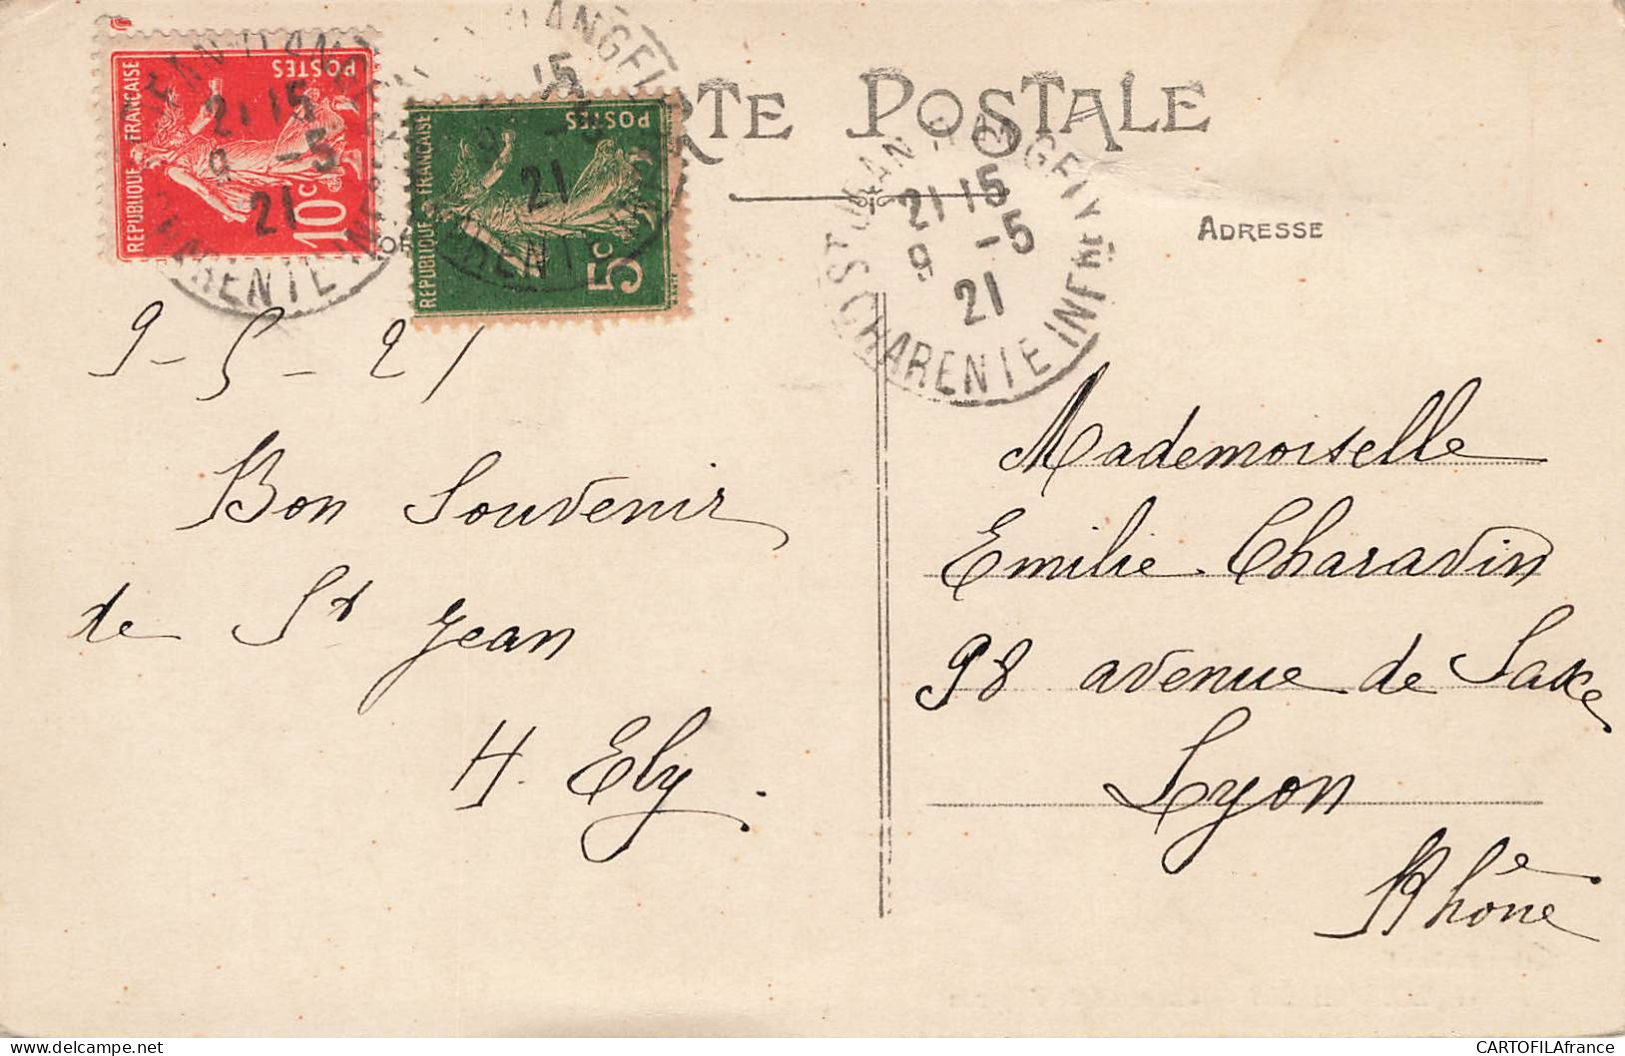 CARTE POSTALE
ADRESSE
REPUBLIQUE FRANÇAISE
POSTES
10c
REPUBLIQUE FRANÇAISE
POSTES
5c
ST JEAN D'ANGELY
21 15
9 -5
21
CHARENTE INFRE
9-5-21
Bon Souvenir
de St Jean
H. Ely.
Mademoiselle
Emilie Charavin
98 avenue de Saxe
Lyon
Rhône
CARTOFILAfrance